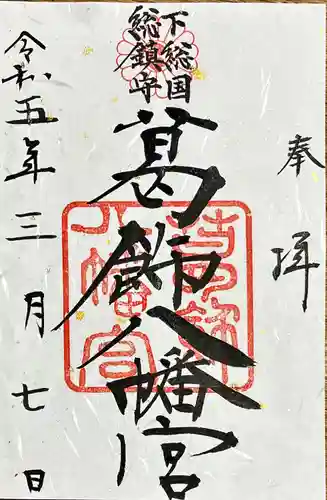 奉拝
下総国
総鎮守
葛飾八幡宮
葛飾
八幡宮
令和五年三月七日